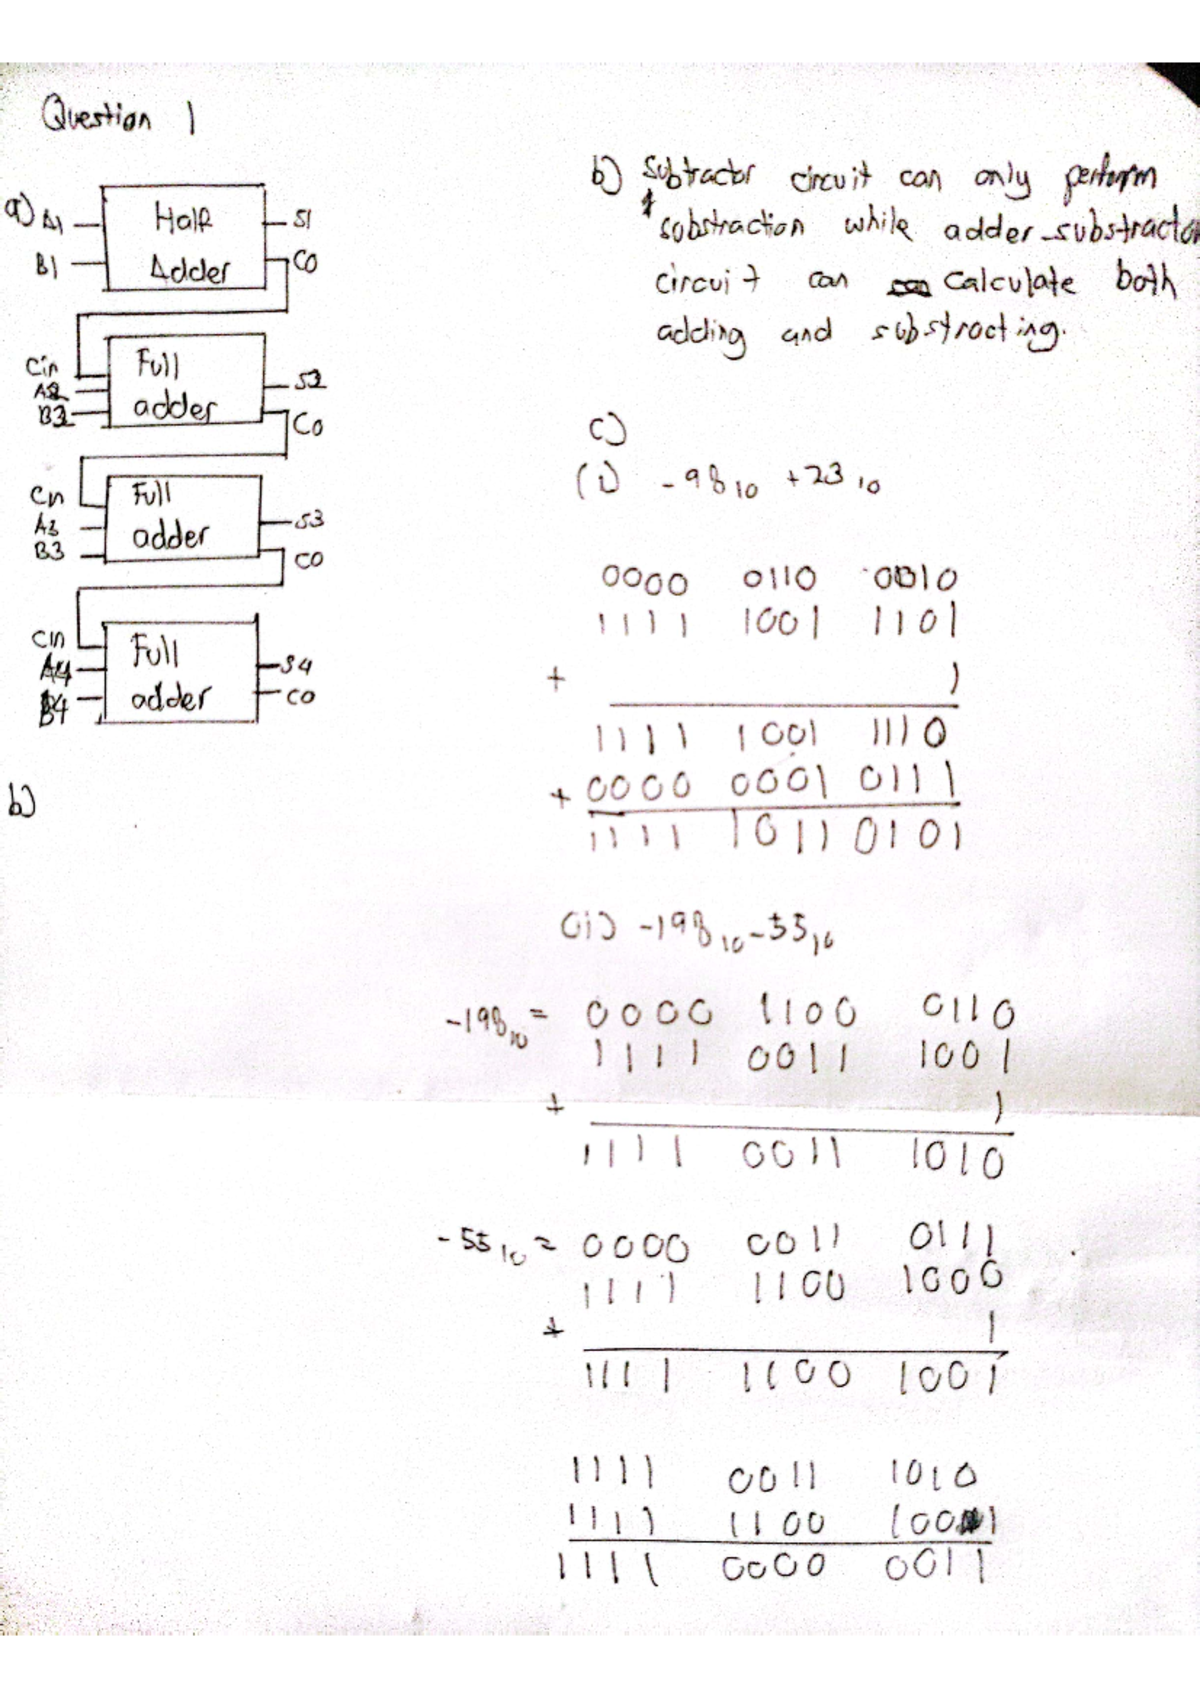 Question 1
a) A1 Half S1
B1 Adder C0
Cin Full
A2 S2
B2 adder C0
Cin Full
A3 adder S3
B3 C0
Cin Full
A4 S4
B4 adder C0
b)
b) Subtractor circuit can only perform
substraction while adder-substractor
circuit can calculate both
adding and substracting.
c)
(i) -98₁₀ +23₁₀
0000 0110 0010
1111 1001 1101
+ 1
1111 1001 1110
+ 0000 0001 0111
1111 1011 0101
(ii) -198₁₀ -55₁₀
-198₁₀ = 0000 1100 0110
1111 0011 1001
+ 1
1111 0011 1010
-55₁₀ = 0000 0011 0111
1111 1100 1000
+ 1
1111 1100 1001
1111 0011 1010
1111 1100 1001
1111 0000 0011